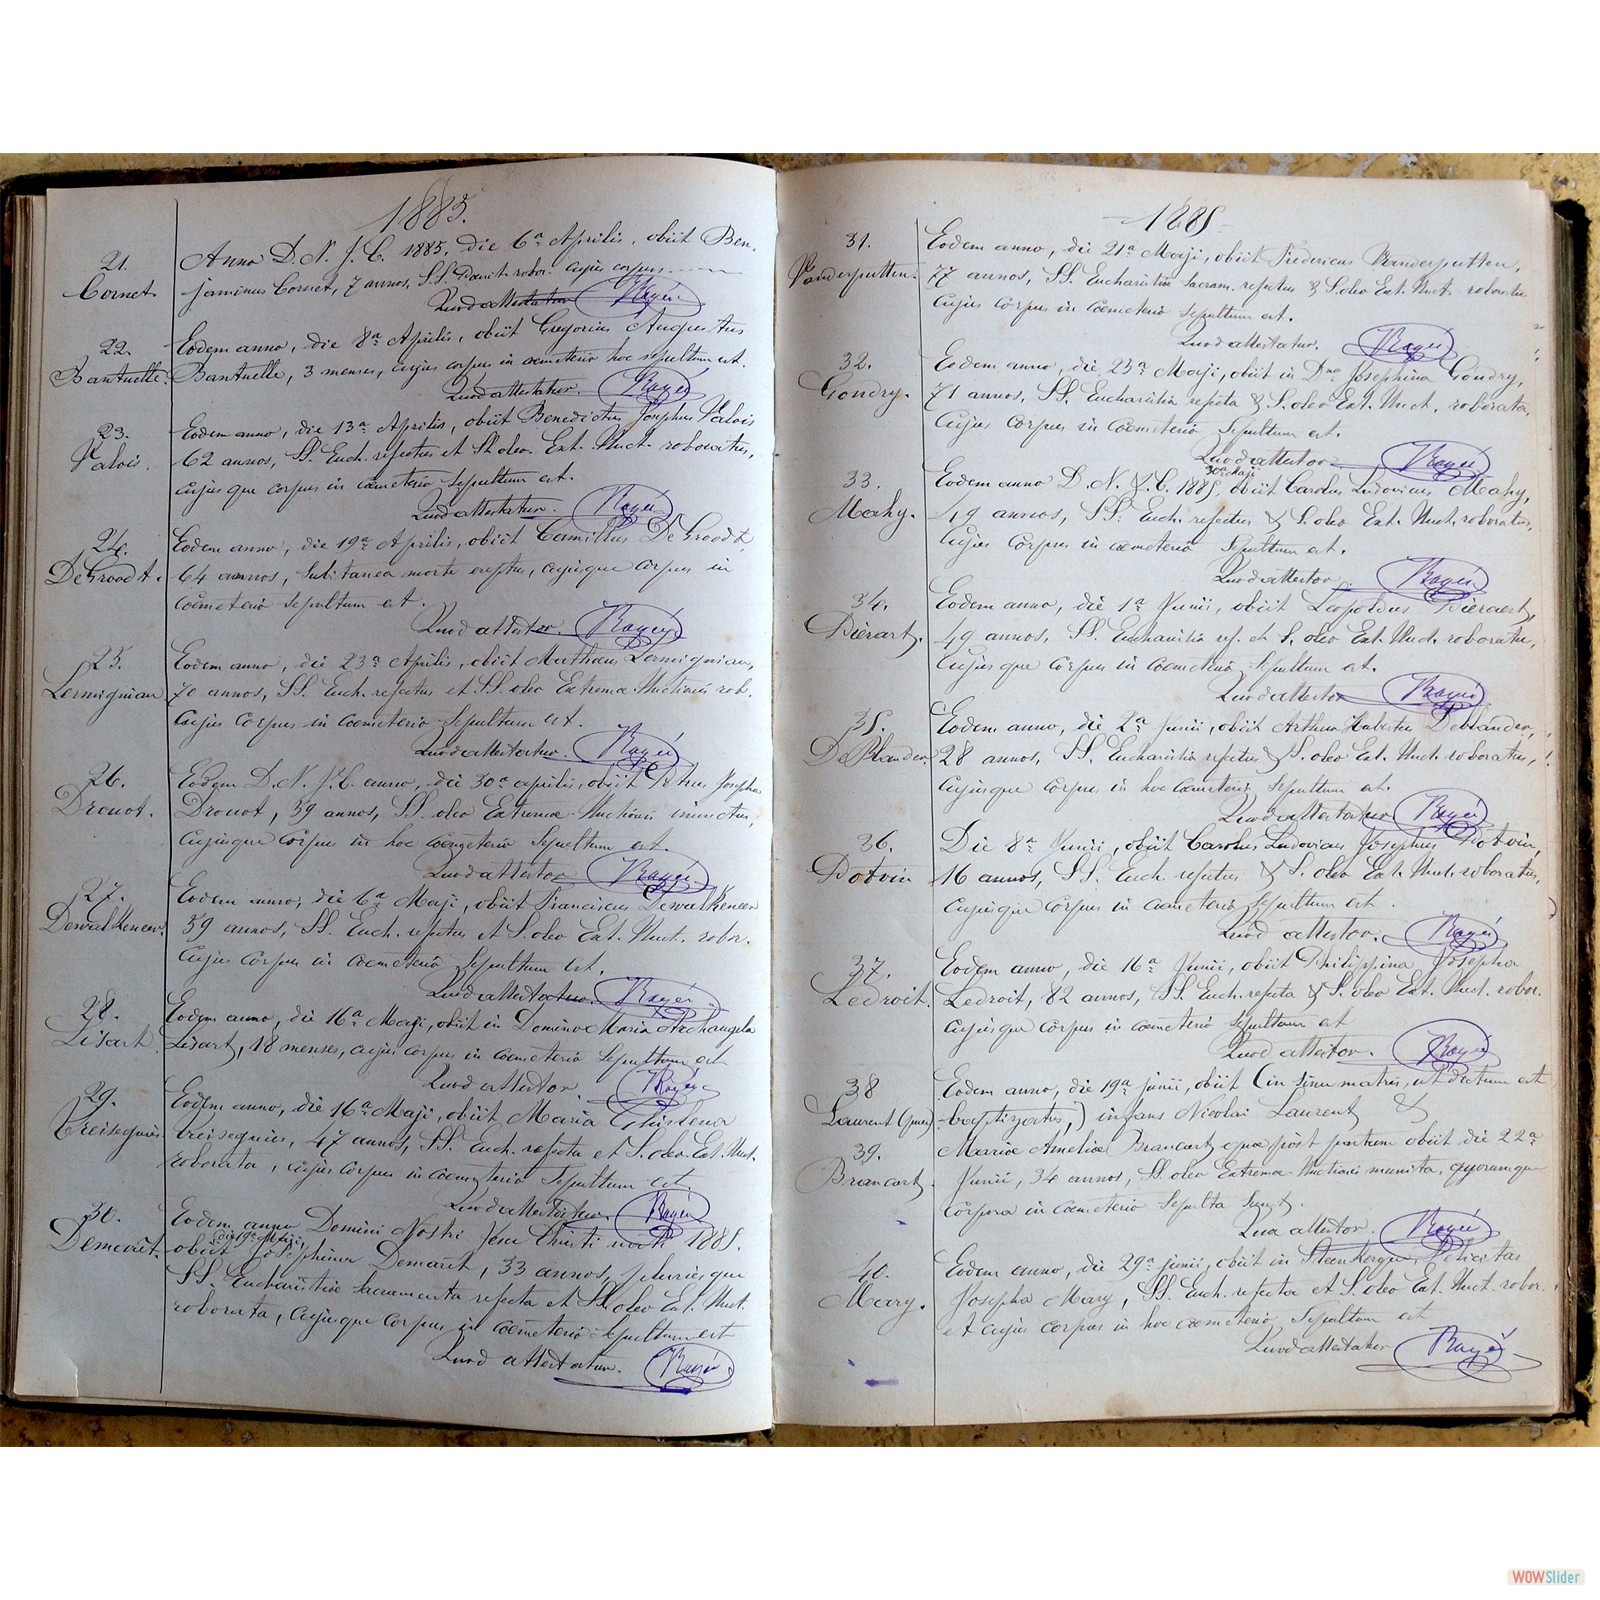 1885.
21.
Cornet.
Anno D. N. J. C. 1885, die 6a Aprilis, obiit Ben-
jaminus Cornet, 7 annos, S.S. robor. cujus corpus
Quod attestatur Rayée
22.
Bantuelle.
Eodem anno, die 8a Aprilis, obiit Gregorius Augustus
Bantuelle, 3 menses, cujus corpus in cœmeterio hoc sepultum est.
Quod attestatur. Rayée
23.
Valois.
Eodem anno, die 13a Aprilis, obiit Benedictus Josephus Valois
62 annos, SS. Euch. refectus et St oleo Ext. Unct. roboratus,
cujusque corpus in cœmeterio sepultum est.
Quod attestatur. Rayée
24.
De Groodt.
Eodem anno, die 19a Aprilis, obiit Camillus De Groodt,
64 annos, subitanea morte ereptus, cujusque corpus in
cœmeterio sepultum est.
Quod attestor. Rayée
25.
Lermignian
Eodem anno, die 23a Aprilis, obiit Lermigniau,
70 annos, SS. Euch. refectus et SS. oleo Extremæ Unctionis rob.
Cujus corpus in Cœmeterio Sepultum est.
Quod attestatur. Rayée
26.
Drouot.
Eodem D. N. J. C. anno, die 30a aprilis, obiit Petrus Josephus
Drouot, 39 annos, SS. oleo Extremæ Unctionis inunctus,
cujusque corpus in hoc cœmeterio Sepultum est.
Quod attestor Rayée
27.
Dewalkeneer.
Eodem anno, die 6a Maji, obiit Franciscus Dewalkeneer
39 annos, SS. Euch. refectus et S. oleo Ext. Unct. robor.
Cujus corpus in Cœmeterio Sepultum est.
Quod attestatur Rayée
28.
Lisart.
Eodem anno, die 16a Maji, obiit in Domino Maria Archangela
Lisart, 18 menses, cujus corpus in cœmeterio Sepultum est
Quod attestor. Rayée
29.
Creisequies
Eodem anno, die 16a Maji, obiit Maria Ghislena
Creisequies, 47 annos, SS. Euch. refecta et S. oleo Ext. Unct.
roborata, cujus corpus in cœmeterio Sepultum est.
Quod attestatur. Rayée
30.
Demaret.
Eodem anno Domini Nostri Jesu Christi 1885.
die 19a Maji,
obiit Josephina Demaret, 33 annos, pluriesque
SS. Eucharistiæ Sacramenta refecta et SS. oleo Ext. Unct.
roborata, cujusque corpus in cœmeterio Sepultum est
Quod attestatur. Rayée
1885
31.
Vanderputten.
Eodem anno, die 21a Maji, obiit Fredericus Vanderputten,
77 annos, SS. Eucharistiæ Sacram. refectus & S. oleo Ext. Unct. roboratus
cujus corpus in cœmeterio Sepultum est.
Quod attestatur. Rayée
32.
Gondry.
Eodem anno, die 23a Maji, obiit in Dno Josephina Gondry,
71 annos, SS. Eucharistia refecta & S. oleo Ext. Unct. roborata,
cujus corpus in cœmeterio Sepultum est.
Quod attestor Rayée
33.
Mahy.
30a Maji
Eodem anno D. N. J. C. 1885, obiit Carolus Ludovicus Mahy,
49 annos, SS. Euch. refectus & S. oleo Ext. Unct. roboratus,
cujus corpus in cœmeterio Sepultum est.
Quod attestor Rayée
34.
Piérart.
Eodem anno, die 1a Junii, obiit Leopoldus Piérart,
49 annos, SS. Eucharistia ref. et S. oleo Ext. Unct. roboratus,
cujusque corpus in cœmeterio Sepultum est.
Quod attestor Rayée
35.
De Blander.
Eodem anno, die 2a Junii, obiit Arthur Hubertus Deblander,
28 annos, SS. Eucharistia refectus & S. oleo Ext. Unct. roboratus,
cujusque corpus in hoc cœmeterio Sepultum est.
Quod attestatur Rayée
36.
Potvin
Die 8a Junii, obiit Carolus Ludovicus Josephus Potvin,
16 annos, SS. Euch. refectus & S. oleo Ext. Unct. roboratus,
cujusque corpus in cœmeterio Sepultum est.
Quod attestor. Rayée
37.
Ledroit.
Eodem anno, die 16a Junii, obiit Philippina Josepha
Ledroit, 82 annos, SS. Euch. refecta & S. oleo Ext. Unct. robor.
cujusque corpus in cœmeterio Sepultum est
Quod attestor. Rayée
38
Laurent (puer)
Eodem anno, die 19a junii, obiit (in sinu matris, ut dictum est
baptizatus,) infans Nicolai Laurent &
39.
Brancart.
Mariæ Ameliæ Brancart, quæ post partum obiit die 22a
Junii, 34 annos, SS. oleo Extremæ Unctionis munita, quorumque
corpora in cœmeterio Sepulta sunt.
Quæ attestor. Rayée
40.
Mary.
Eodem anno, die 29a junii, obiit in Steenkerque, Felicitas
Josepha Mary, SS. Euch. refecta et S. oleo Ext. Unct. robor.
et cujus corpus in hoc cœmeterio Sepultum est
Quod attestatur Rayée
WOWSlider